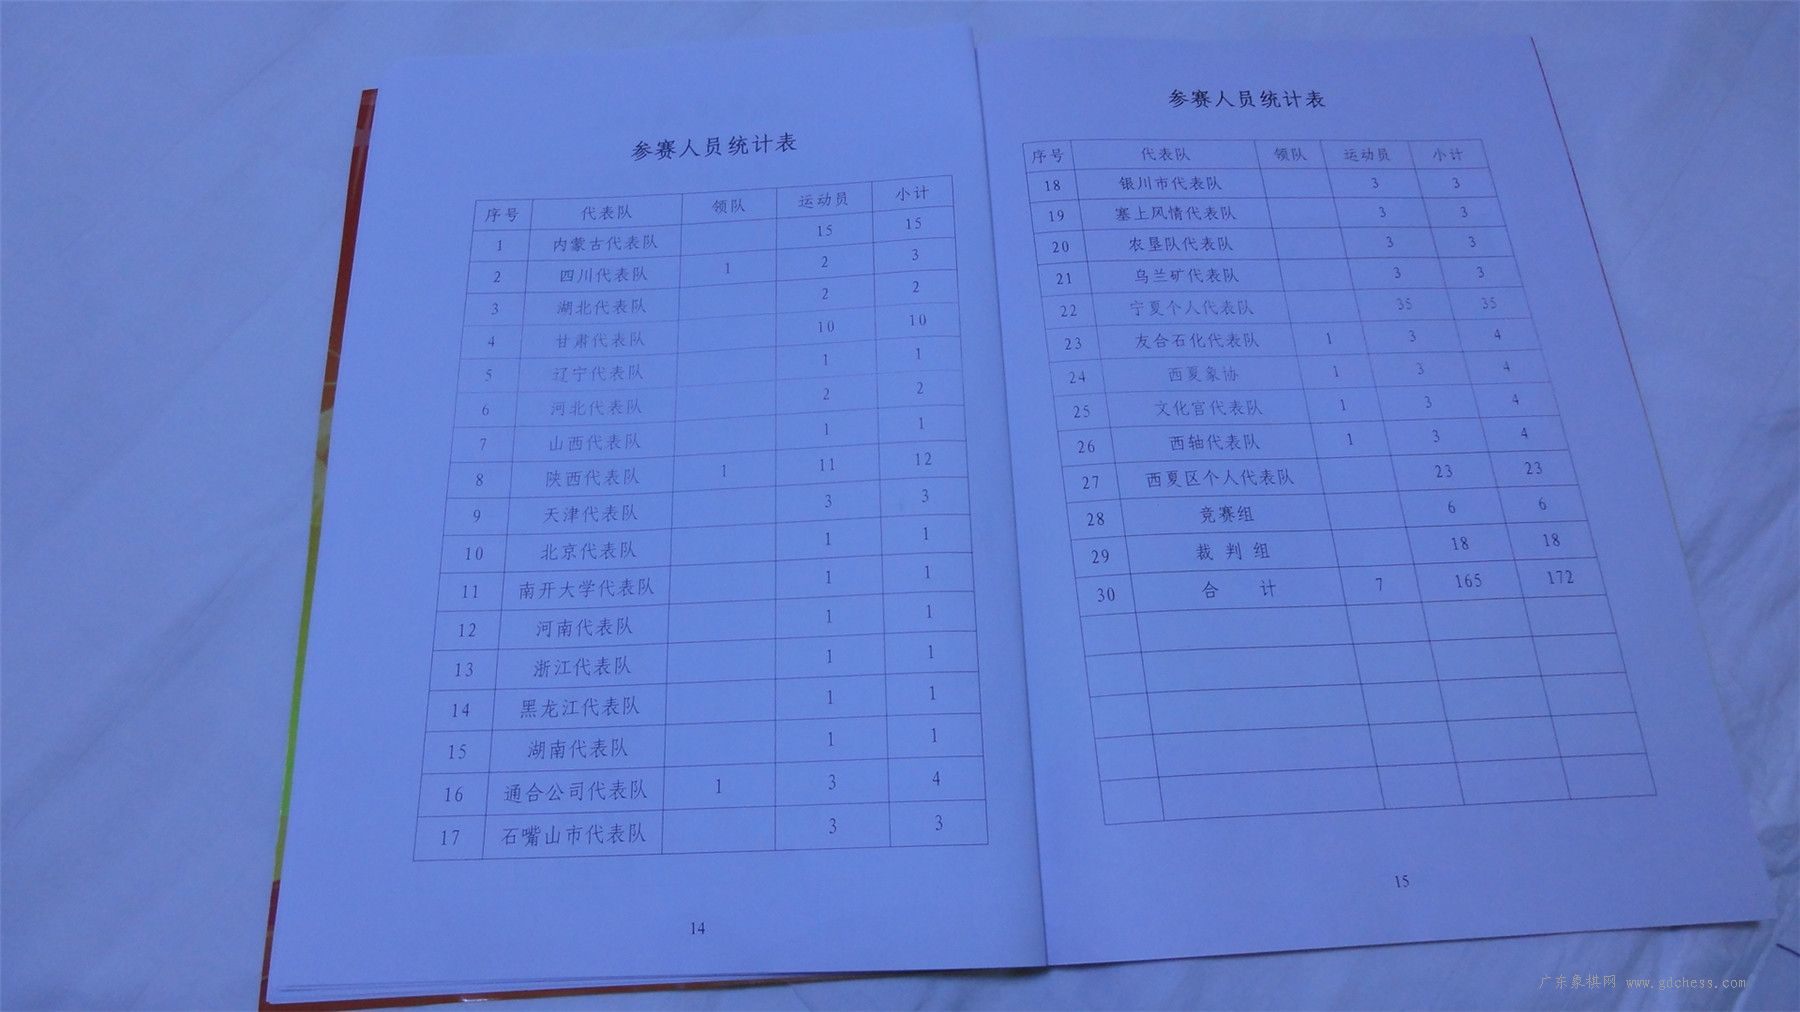 参赛人员统计表
序号 代表队 领队 运动员 小计
1 内蒙古代表队 15 15
2 四川代表队 1 2 3
3 湖北代表队 2 2
4 甘肃代表队 10 10
5 辽宁代表队 1 1
6 河北代表队 2 2
7 山西代表队 1 1
8 陕西代表队 1 11 12
9 天津代表队 3 3
10 北京代表队 1 1
11 南开大学代表队 1 1
12 河南代表队 1 1
13 浙江代表队 1 1
14 黑龙江代表队 1 1
15 湖南代表队 1 1
16 通合公司代表队 1 3 4
17 石嘴山市代表队 3 3
14
参赛人员统计表
序号 代表队 领队 运动员 小计
18 银川市代表队 3 3
19 塞上风情代表队 3 3
20 农垦队代表队 3 3
21 乌兰矿代表队 3 3
22 宁夏个人代表队 35 35
23 友合石化代表队 1 3 4
24 西夏象协 1 3 4
25 文化宫代表队 1 3 4
26 西轴代表队 1 3 4
27 西夏区个人代表队 23 23
28 竞赛组 6 6
29 裁 判 组 18 18
30 合 计 7 165 172
15
广东象棋网 www.gdchess.com